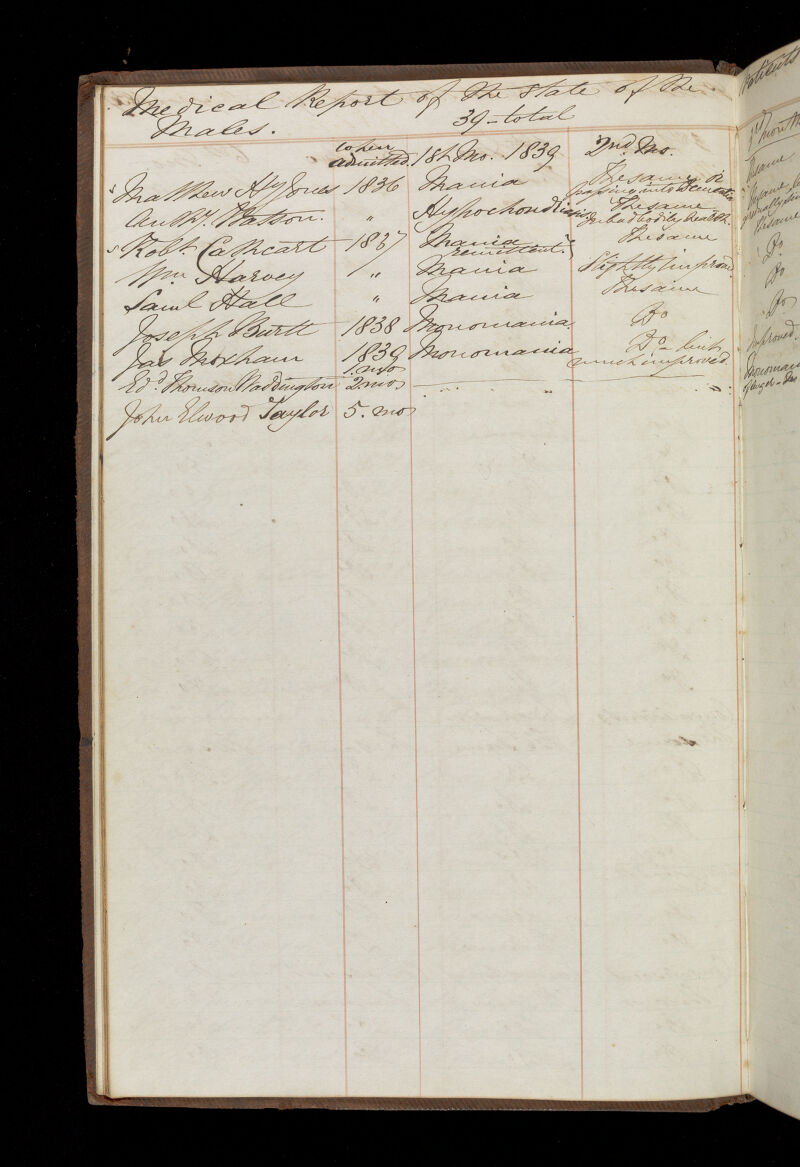 Medical Report of the state of the
Males. 39 - total
when
admitted. 1st Mo. 1839 2nd Mo.
Matthew Hy Jones 1836 Mania The same or
passing into Dementia
Anthy. Watson. " Hypochondriasis The same
in bad bodily health.
Robt. Cathcart 1837 Mania The same
remittent.
Wm Harvey " Mania Slightly improved.
Saml Hall " Mania The same
Joseph Burtt 1838 Monomania. Do
Jas Moxham 1839 Monomania Do - but
1. mo much improved.
Edd. Thomson Waddington 2. mo
John Elwood Taylor 5. mo
Patients
Insane
Do
Do
Do
Improved.